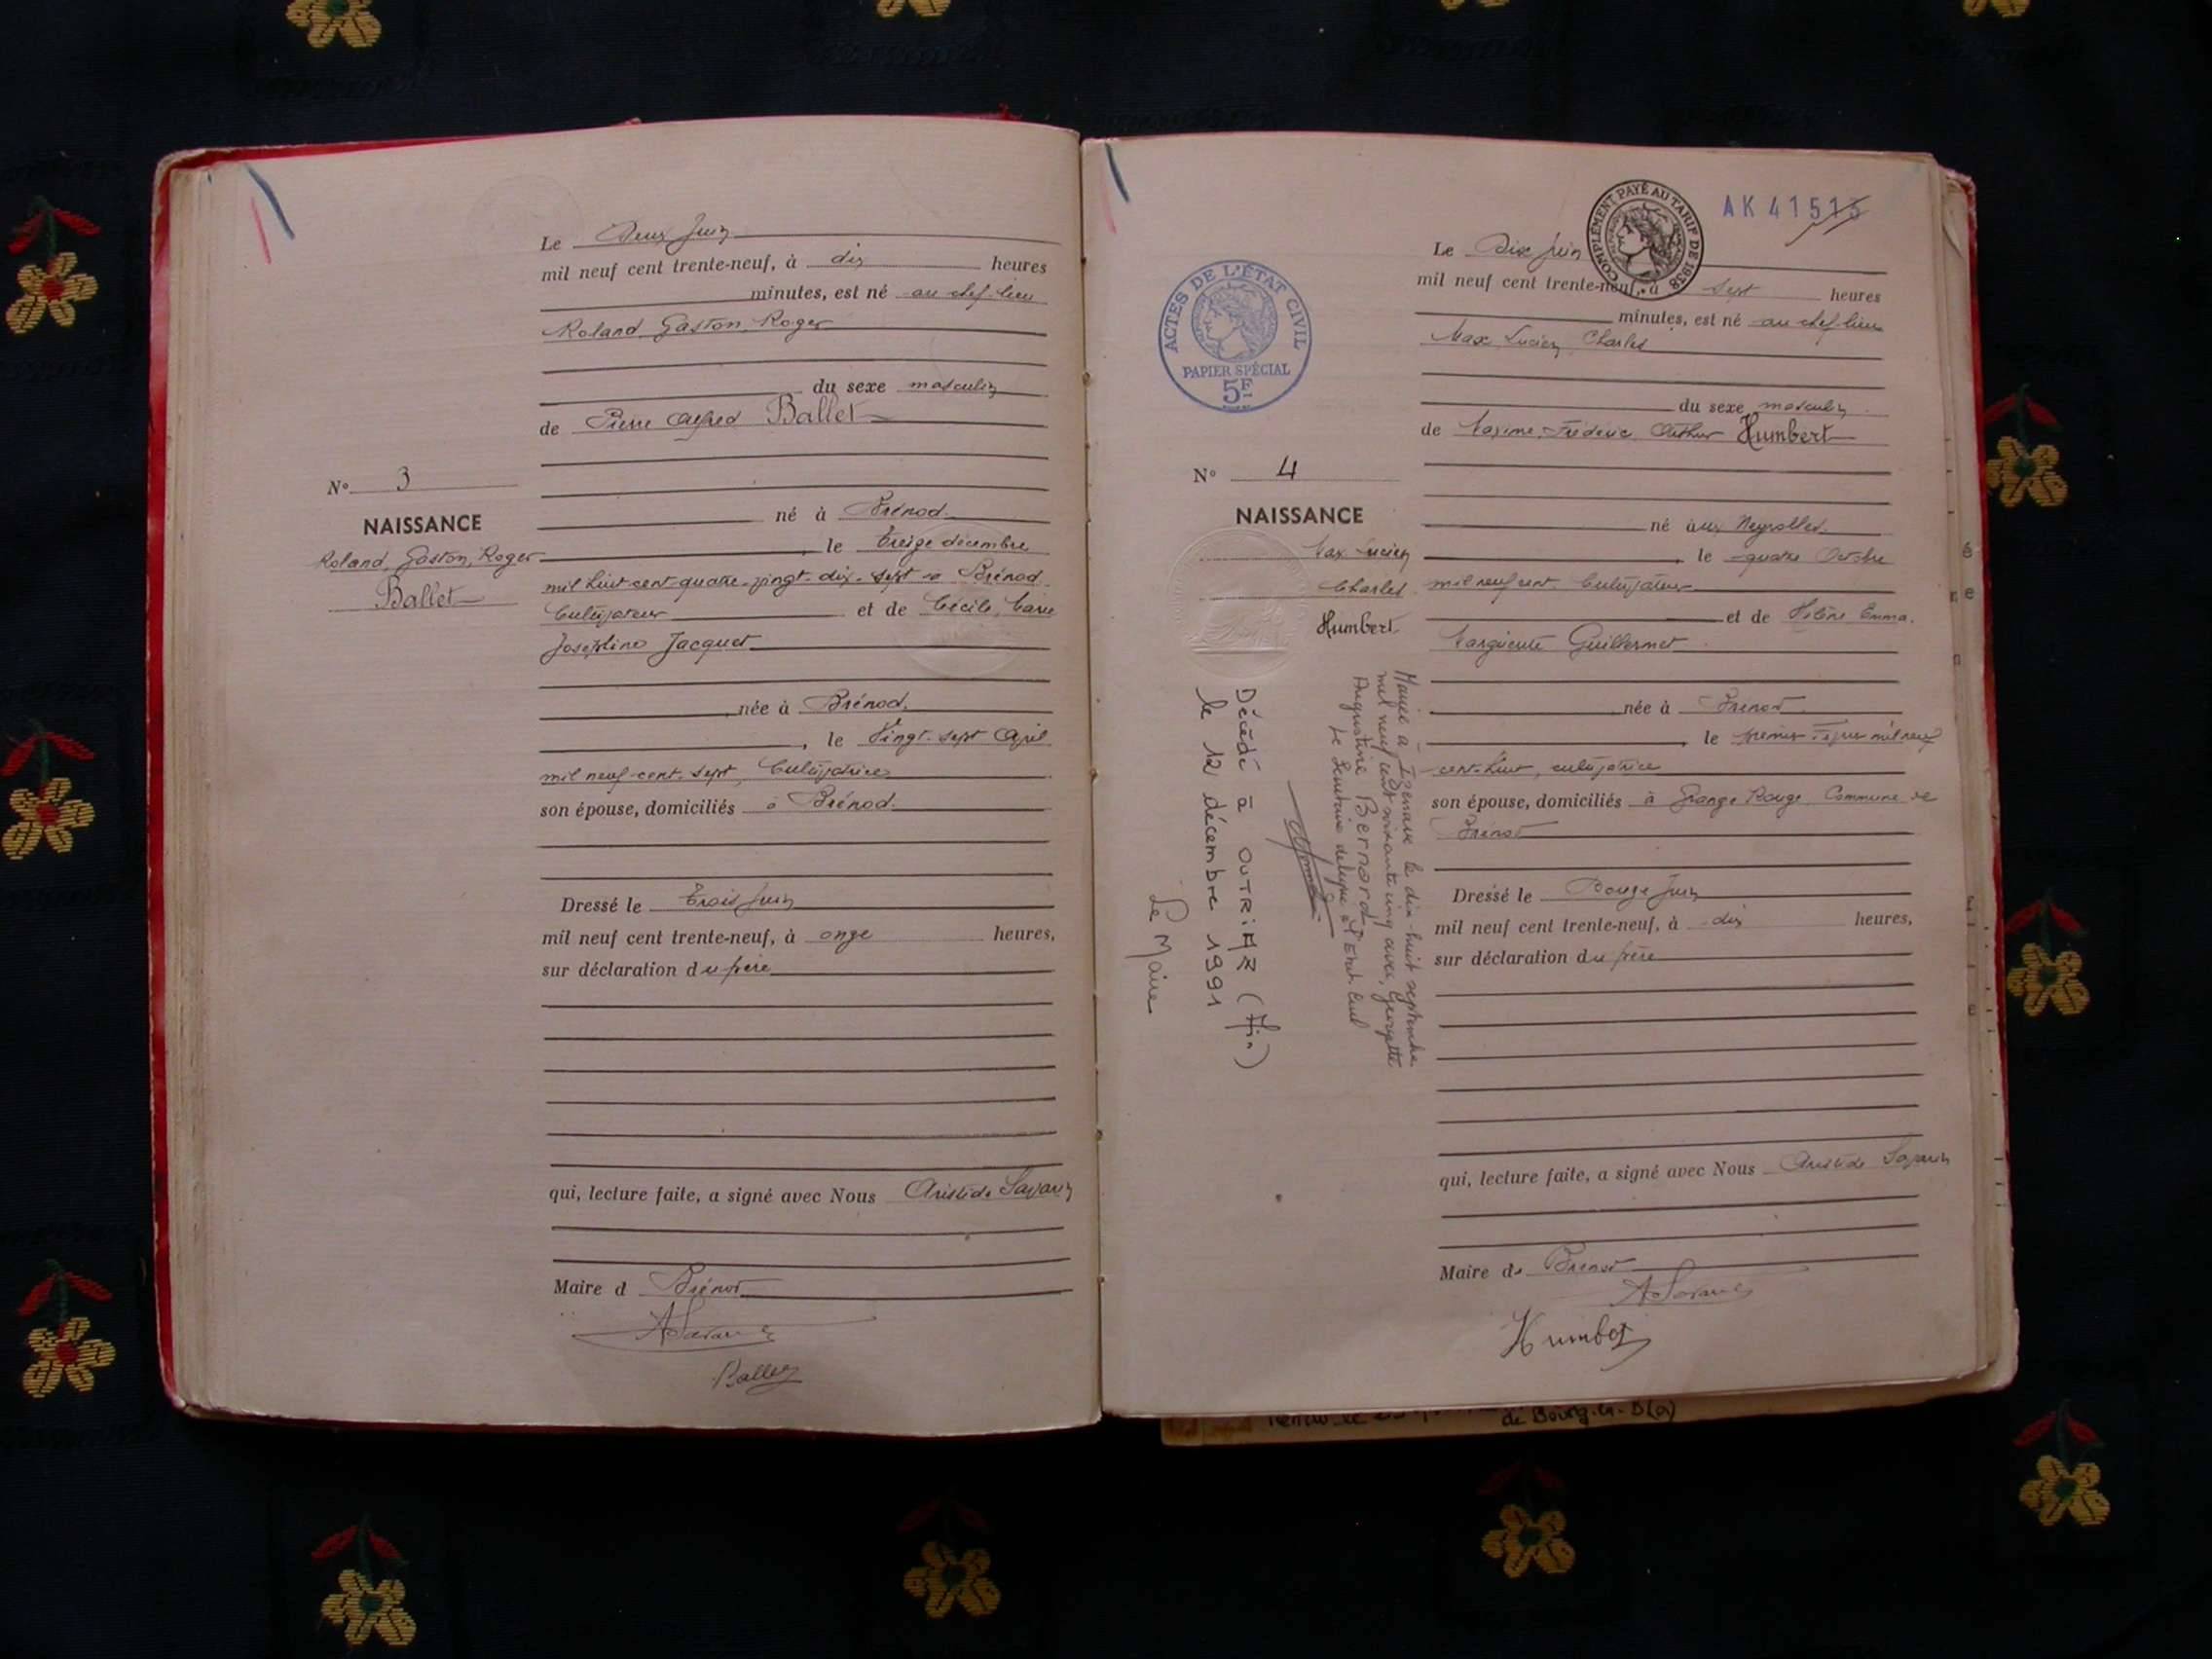 Le Deux Juin
mil neuf cent trente-neuf, à dix heures
minutes, est né au chef-lieu
Roland, Gaston, Roger
du sexe masculin
de Pierre Alfred Ballet
N° 3
NAISSANCE
Roland, Gaston, Roger
Ballet
né à Brénod
, le treize décembre
mil huit cent quatre-vingt-dix-sept à Brénod
Cultivateur et de Cécile, Marie
Joséphine Jacquet
née à Brénod
, le Vingt-sept Avril
mil neuf cent sept, Cultivatrice
son épouse, domiciliés à Brénod
Dressé le trois Juin
mil neuf cent trente-neuf, à onze heures,
sur déclaration du père
qui, lecture faite, a signé avec Nous Aristide Savarin
Maire d Brénod
ASavarin
Ballet
AK 41513
COMPLÉMENT PAYÉ AU TARIF DE 1938
ACTES DE L'ÉTAT CIVIL
PAPIER SPÉCIAL
5F
Le Dix Juin
mil neuf cent trente-neuf, à Sept heures
minutes, est né au chef-lieu
Max, Lucien, Charles
du sexe masculin
de Maxime, Frédéric, Arthur Humbert
N° 4
NAISSANCE
Max, Lucien
Charles
Humbert
né aux Neyrolles
, le quatre Octobre
mil neuf cent, Cultivateur
et de Hélène Emma
Marguerite Guillermet
née à Brénod
, le premier mil neuf
cent-huit, cultivatrice
son épouse, domiciliés à Grange Rouge, Commune de
Brénod
Dressé le Douze Juin
mil neuf cent trente-neuf, à dix heures,
sur déclaration du père
qui, lecture faite, a signé avec Nous Aristide Savarin
Maire de Brénod
ASavarin
Humbert
Marié à Izenave le dix-huit septembre
mil neuf cent soixante cinq avec Georgette
Augustine Bernard
Le Secrétaire délégué à l'Etat Civil
Décédé à OUTRIAZ (Ain)
le 12 décembre 1991
Le Maire
de Bourg-en-B(a)